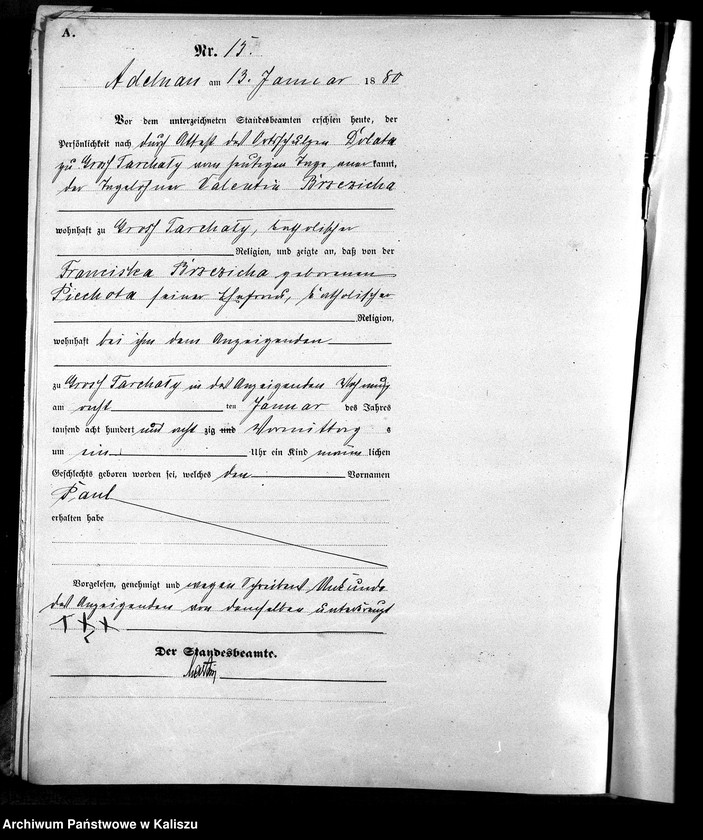 A.
Nr. 15.
Adelnau am 13. Januar 1880
Vor dem unterzeichneten Standesbeamten erschien heute, der
Persönlichkeit nach durch Attest des Ortsschulzen Dolata
zu Gross Tarchaly vom heutigen Tage aner kannt,
der Tagelöhner Valentin Brzezicha
wohnhaft zu Gross Tarchaly, katholischer
Religion, und zeigte an, daß von der
Franciska Brzezicha geborenen
Piechota seiner Ehefrau, katholischer
Religion,
wohnhaft bei ihm dem Anzeigenden
zu Gross Tarchaly in des Anzeigenden Wohnung
am acht ten Januar des Jahres
tausend acht hundert und acht zig und Vormittag s
um ein Uhr ein Kind männ lichen
Geschlechts geboren worden sei, welches den Vornamen
Paul
erhalten habe
Vorgelesen, genehmigt und wegen Schreibens Unkunde
des Anzeigenden von demselben unterkreuzt
+++
Der Standesbeamte.
Archiwum Państwowe w Kaliszu